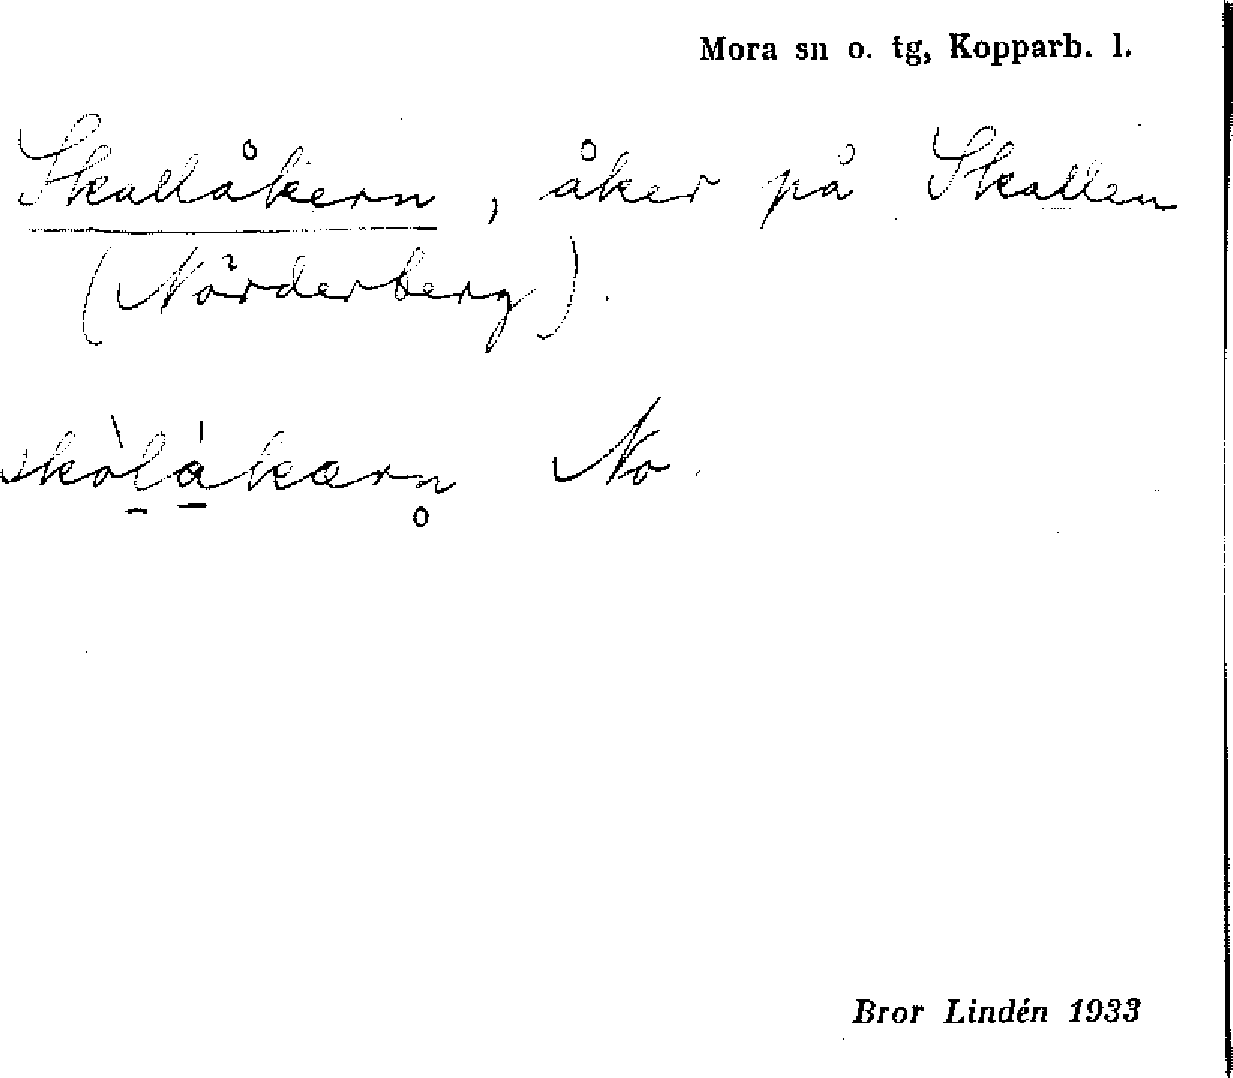 Mora sn o. tg, Kopparb. l.
Skallåkern, åker på Skallen
(Nårderberg).
skòlákærn̥ No.
Bror Lindén 1933